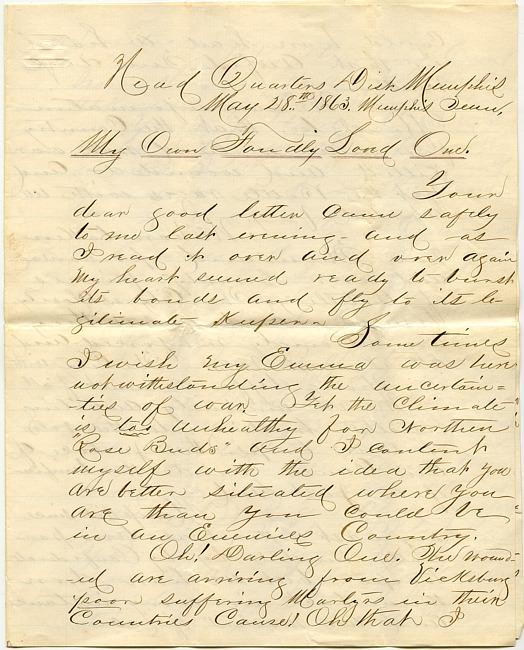 Head Quarters Dist Memphis
May 28.th 1863. Memphis Tenn,
My Own Fondly Loved One.
Your
dear good letter came safely
to me last evening - and as
I read it over and over again
My heart seemed ready to burst
its bonds and fly to its le-
gitimate Keeper.
Sometimes
I wish my Emma was here
notwithstanding the uncertain=
ties of war. Yet the climate
is too unhealthy for Northern
"Rose Buds" and I content
myself with the idea that you
are better situated where you
are than you could be
in an Enemies Country.
Oh! Darling One. The wound-
ed are arriving from Vicksburg
poor suffering Martyrs in their
Countries Cause! Oh that I